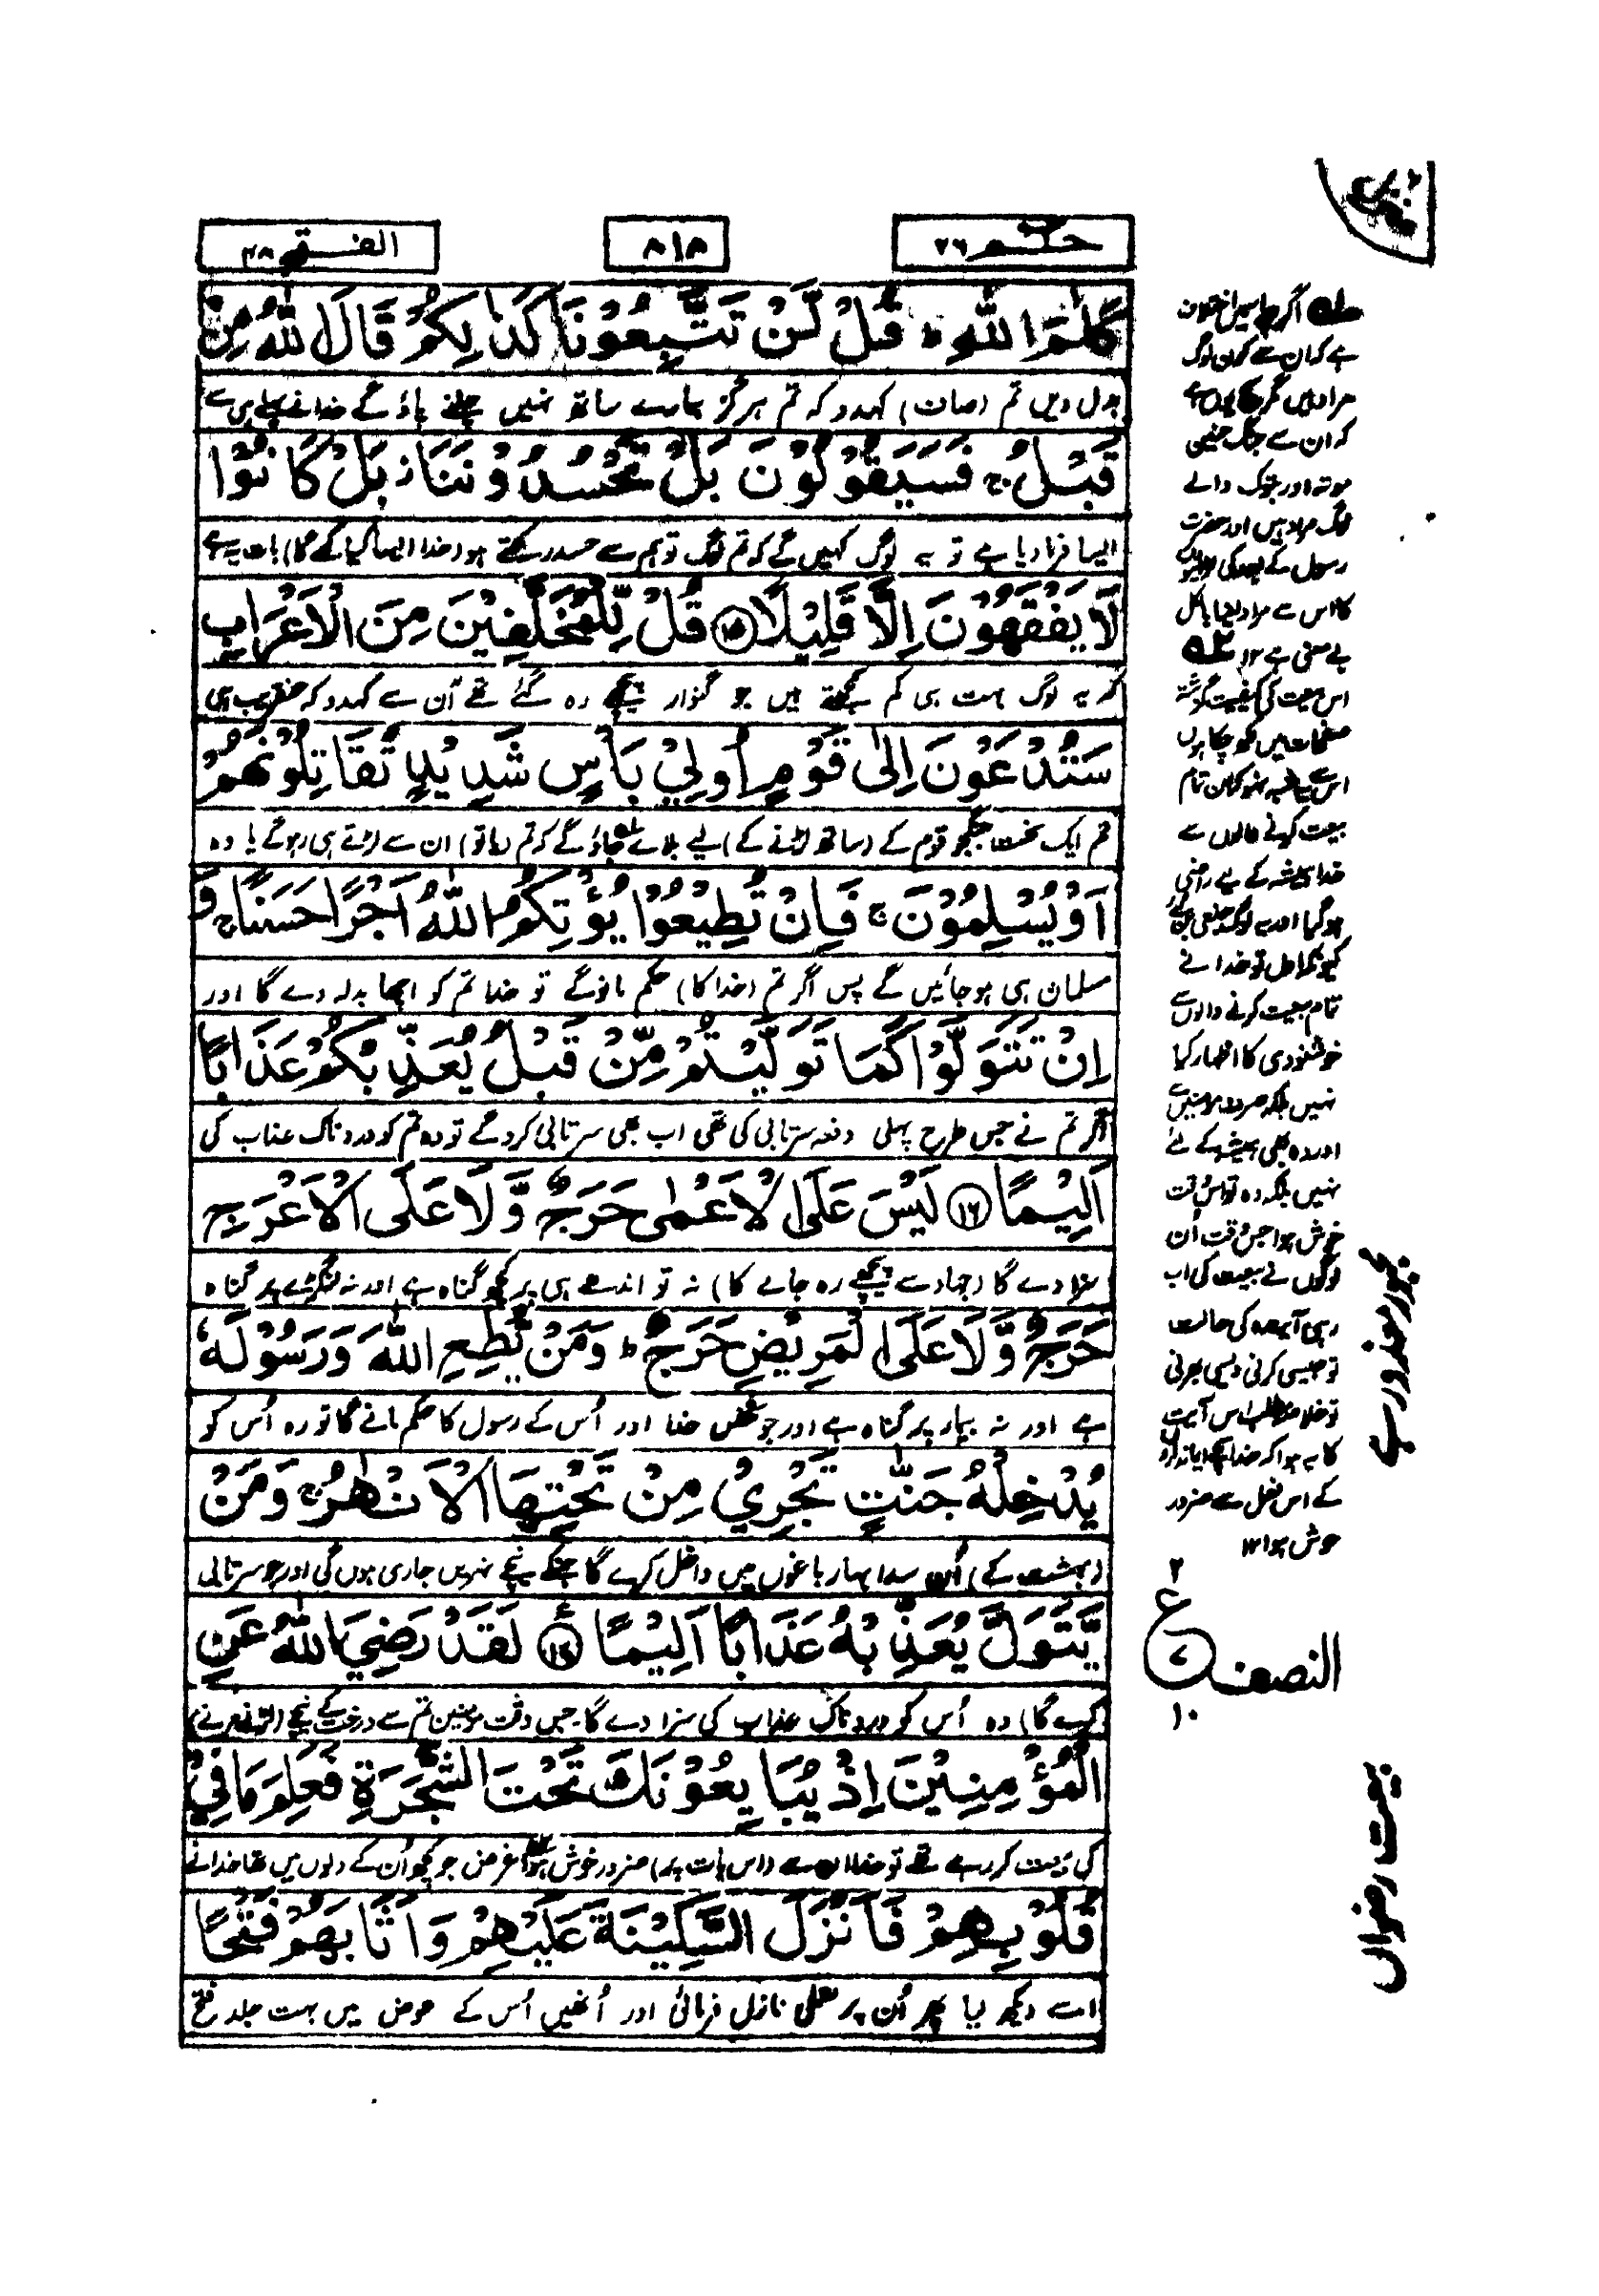 حٰم ۲۶
۸۱۸
الفتح ۴۸
كَلٰمَ اللّٰهِ ؕ قُلْ لَّنْ تَتَّبِعُوْنَا كَذٰلِكُمْ قَالَ اللّٰهُ مِنْ
بدل دیں تم (صاف) کہدو کہ تم ہرگز ہمارے ساتھ نہیں چلنے پاؤ گے خدا نے پہلے ہی سے
قَبْلُ ۚ فَسَيَقُوْلُوْنَ بَلْ تَحْسُدُوْنَنَا ؕ بَلْ كَانُوْا
ایسا فرما دیا ہے تو یہ لوگ کہیں گے کہ تم لوگ تو ہم سے حسد رکھتے ہو (خدا ایسا کیا کہے گا) بات یہ ہے
لَا يَفْقَهُوْنَ اِلَّا قَلِيْلًا ﴿۱۵﴾ قُلْ لِّلْمُخَلَّفِيْنَ مِنَ الْاَعْرَابِ
کہ یہ لوگ بہت ہی کم سمجھتے ہیں جو گنوار پیچھے رہ گئے تھے اُن سے کہدو کہ عنقریب ہی
سَتُدْعَوْنَ اِلٰى قَوْمٍ اُولِيْ بَاْسٍ شَدِيْدٍ تُقَاتِلُوْنَهُمْ
تم ایک سخت جنگجو قوم کے (ساتھ لڑنے کے) لیے بلائے جاؤ گے کہ تم (یا تو) ان سے لڑتے ہی رہو گے یا وہ
اَوْ يُسْلِمُوْنَ ۚ فَاِنْ تُطِيْعُوْا يُؤْتِكُمُ اللّٰهُ اَجْرًا حَسَنًا ۚ وَ
مسلمان ہی ہو جائیں گے پس اگر تم (خدا کا) حکم مانو گے تو خدا تم کو اچھا بدلہ دے گا اور
اِنْ تَتَوَلَّوْا كَمَا تَوَلَّيْتُمْ مِّنْ قَبْلُ يُعَذِّبْكُمْ عَذَابًا
اگر تم نے جس طرح پہلی دفعہ سرتابی کی تھی اب بھی سرتابی کرو گے تو وہ تم کو دردناک عذاب کی
اَلِيْمًا ﴿۱۶﴾ لَيْسَ عَلَى الْاَعْمٰى حَرَجٌ وَّلَا عَلَى الْاَعْرَجِ
سزا دے گا (جہاد سے پیچھے رہ جانے کا) نہ تو اندھے ہی پر کچھ گناہ ہے اور نہ لنگڑے پر گناہ
حَرَجٌ وَّلَا عَلَى الْمَرِيْضِ حَرَجٌ ؕ وَمَنْ يُّطِعِ اللّٰهَ وَرَسُوْلَهٗ
ہے اور نہ بیمار پر گناہ ہے اور جو شخص خدا اور اُس کے رسول کا حکم مانے گا تو وہ اُس کو
يُدْخِلْهُ جَنّٰتٍ تَجْرِيْ مِنْ تَحْتِهَا الْاَنْهٰرُ ۚ وَمَنْ
(بہشت کے) اُن سدا بہار باغوں میں داخل کرے گا جنکے نیچے نہریں جاری ہوں گی اور جو سرتابی
يَّتَوَلَّ يُعَذِّبْهُ عَذَابًا اَلِيْمًا ﴿۱۷﴾ لَقَدْ رَضِيَ اللّٰهُ عَنِ
کرے گا) وہ اُس کو دردناک عذاب کی سزا دے گا۔ جس وقت مومنین تم سے درخت کے نیچے (لڑنے مرنے)
الْمُؤْمِنِيْنَ اِذْ يُبَايِعُوْنَكَ تَحْتَ الشَّجَرَةِ فَعَلِمَ مَا فِيْ
کی بیعت کر رہے تھے تو خدا ان سے (اس بات پر) ضرور خوش ہوا غرض جو کچھ اُن کے دلوں میں تھا خدا نے
قُلُوْبِهِمْ فَاَنْزَلَ السَّكِيْنَةَ عَلَيْهِمْ وَاَثَابَهُمْ فَتْحًا
اسے دیکھ لیا پھر اُن پر تسلی نازل فرمائی اور اُنھیں اُس کے عوض میں بہت جلد فتح
ـ۱ـه اگرچہ اسمیں اختلاف
ہے کہ ان سے کون لوگ
مراد ہیں مگر
کہ ان سے جنگ حنین
موتہ اور تبوک والے
لوگ مراد ہیں اور حضرت
رسول کے بعد کی لڑائیوں
کا اس سے مراد لینا بالکل
بے معنی ہے ۱۲ ـ۲ـه
اس بیعت کی کیفیت گزشتہ
صفحات میں لکھ چکا ہوں
اس سے یہ شبہہ نہ ہو کہ ان تمام
بیعت کرنے والوں سے
خدا ہمیشہ کے لیے راضی
ہو گیا اور یہ لوگ
کیونکہ اول تو خدا نے
تمام بیعت کرنے والوں سے
خوشنودی کا اظہار کیا
نہیں بلکہ صرف مومنین سے
اور وہ بھی ہمیشہ کے لئے
نہیں بلکہ وہ تو اس وقت
خوش ہوا جس وقت اُن
لوگوں نے بیعت کی اب
رہی آیندہ کی حالت
تو جیسی کرنی ویسی بھرنی
تو خلاصہ مطلب اس آیت
کا یہ ہوا کہ خدا
کے اس فعل سے ضرور
خوش ہوا ۱۲
۲
ع
۷
۱۰
النصف
مجبور معذور ہے
بیعت رضوان